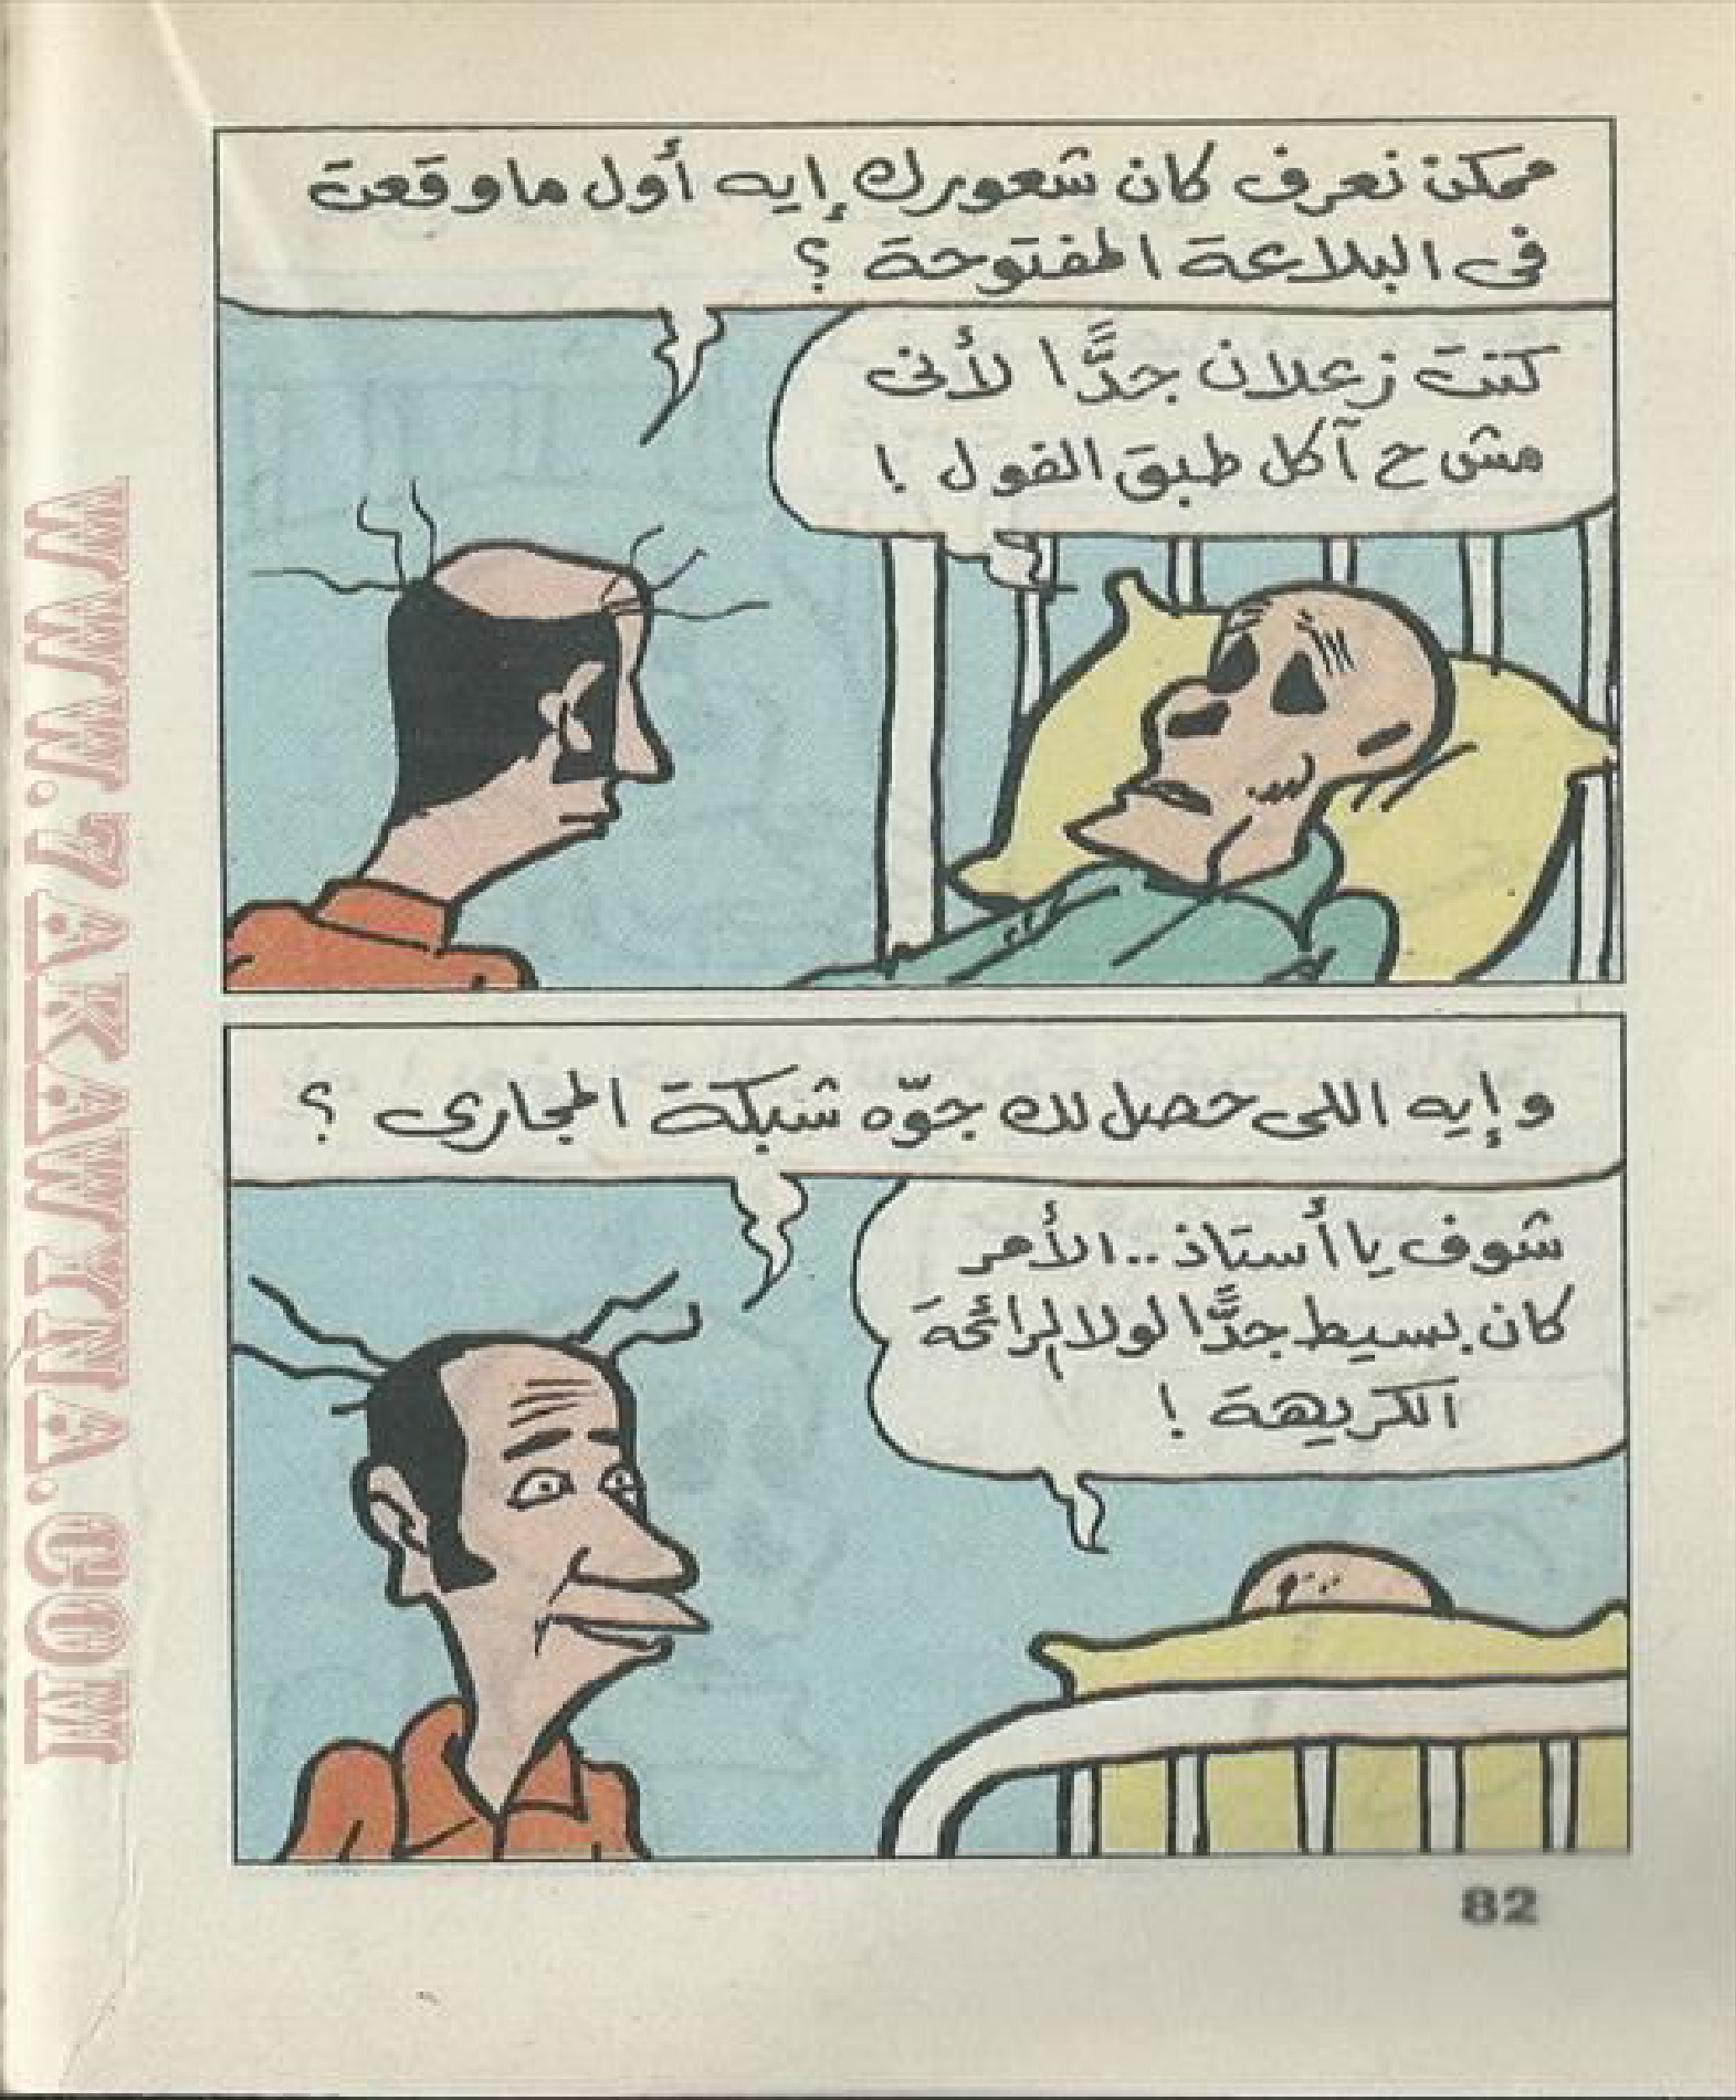 ممكن نعرف كان شعورك إيه أول ما وقعت
فى البلاعة المفتوحة ؟
كنت زعلان جدًّا لأنى
مش ح آكل طبق الفول !
وإيه اللى حصل لك جوّه شبكة المجارى ؟
شوف يا أستاذ .. الأمر
كان بسيط جدًّا لولا الرائحة
الكريهة !
82
WWW.7AKAWITNA.COM